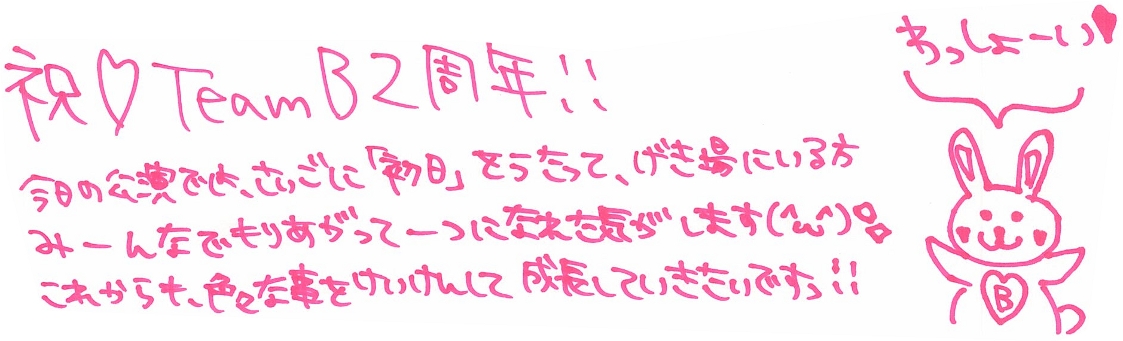 祝♡TeamB2周年!!
わっしょーい♥
今日の公演では、さいごに「初日」をうたって、げき場にいる方
みーんなでもりあがって一つになれた気がします(^ω^)
これからも、色々な事をけいけんして成長していきたいですっ!!
B